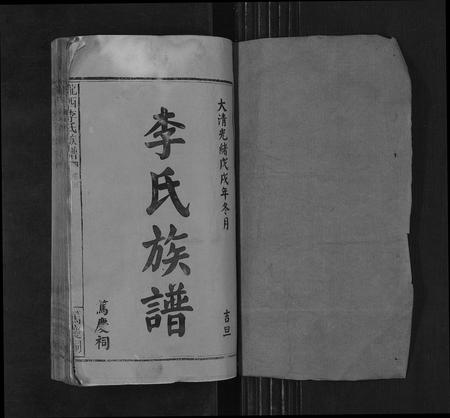 大清光緒戊戌年冬月
吉旦
李氏族譜
篤慶祠
隴西李氏族譜
篤慶祠